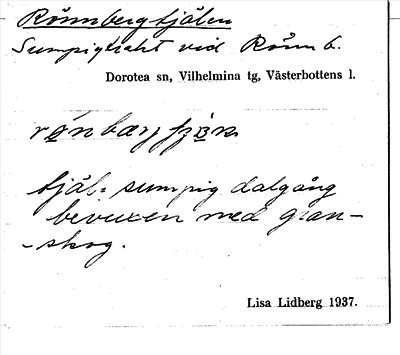 Rönnbergtjälen
Sumpigtrakt vid Rönnb.
Dorotea sn, Vilhelmina tg, Västerbottens l.
tjäl= sumpig dalgång
bevuxen med gran-
-skog.
Lisa Lidberg 1937.